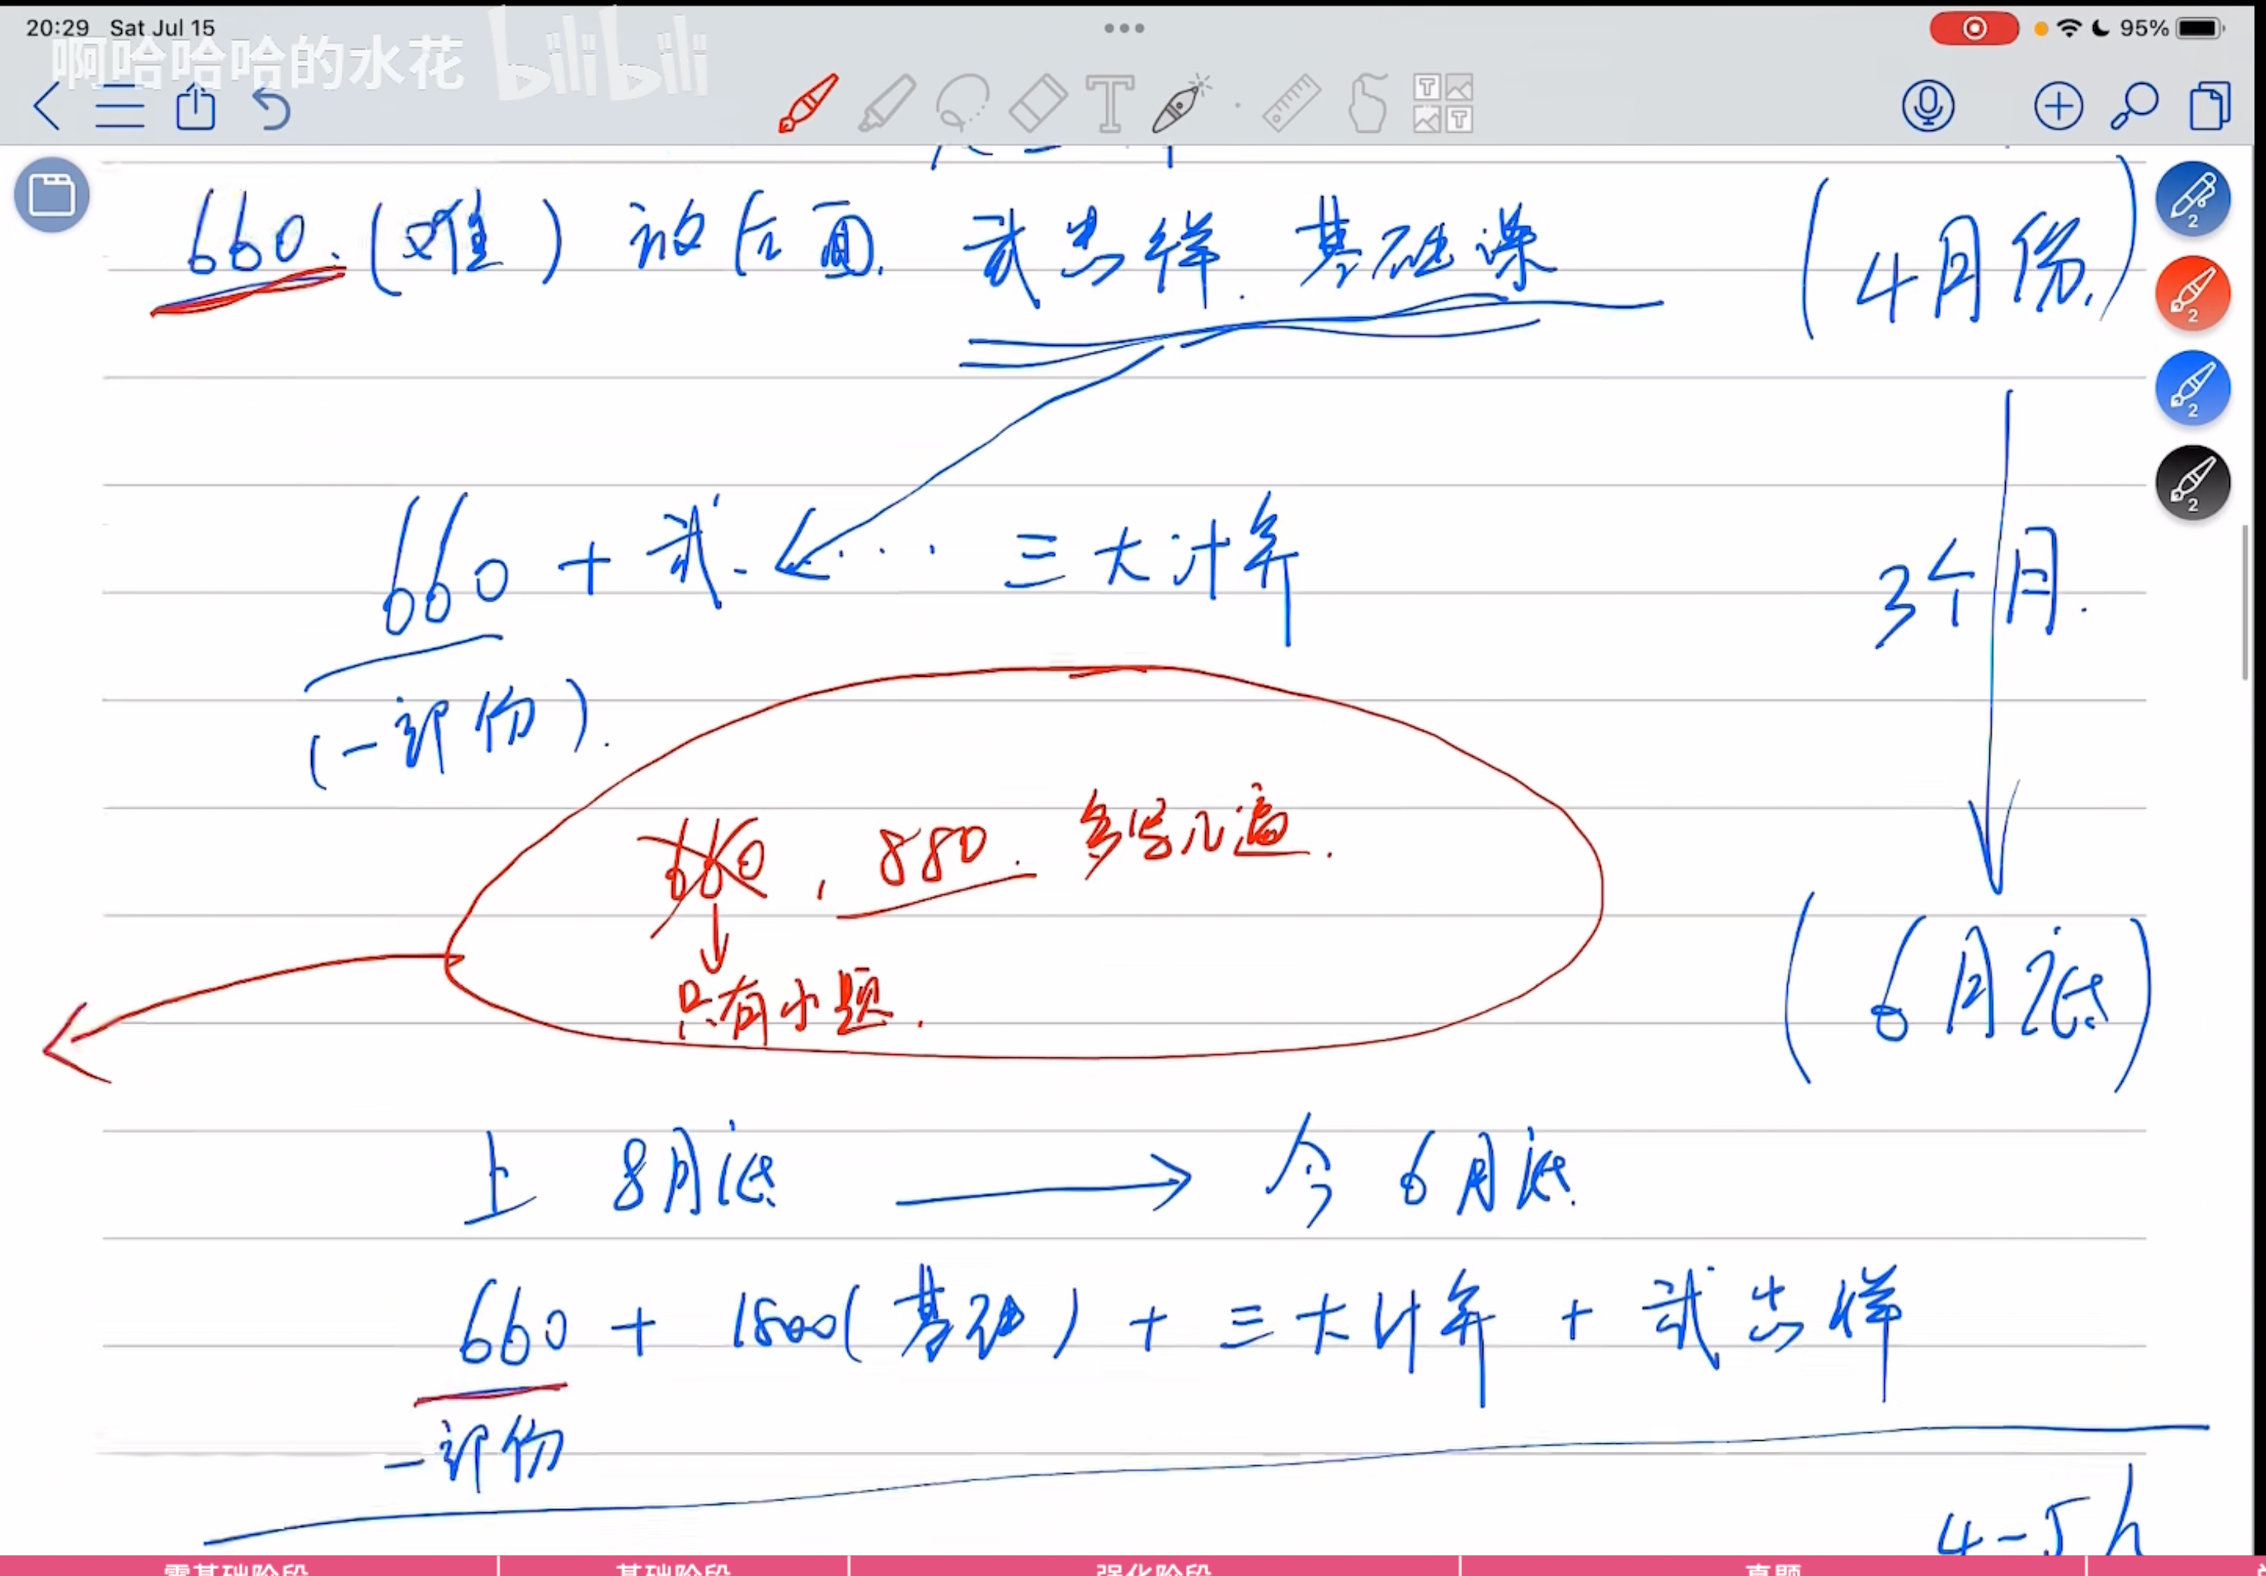 20:29 Sat Jul 15
95%
啊哈哈哈的水花 bilibili
660.(难) 放后面. 武忠祥. 基础课 (4月份.)
660 + 武. ... 三大计算
3个月.
(一部份).
660, 880. 多写几遍.
只有小题.
(6月底)
上 8月底 → 今 6月底.
660 + 1800(基础) + 三大计算 + 武忠祥
一部份
4-5h
零基础阶段 基础阶段 强化阶段 真题